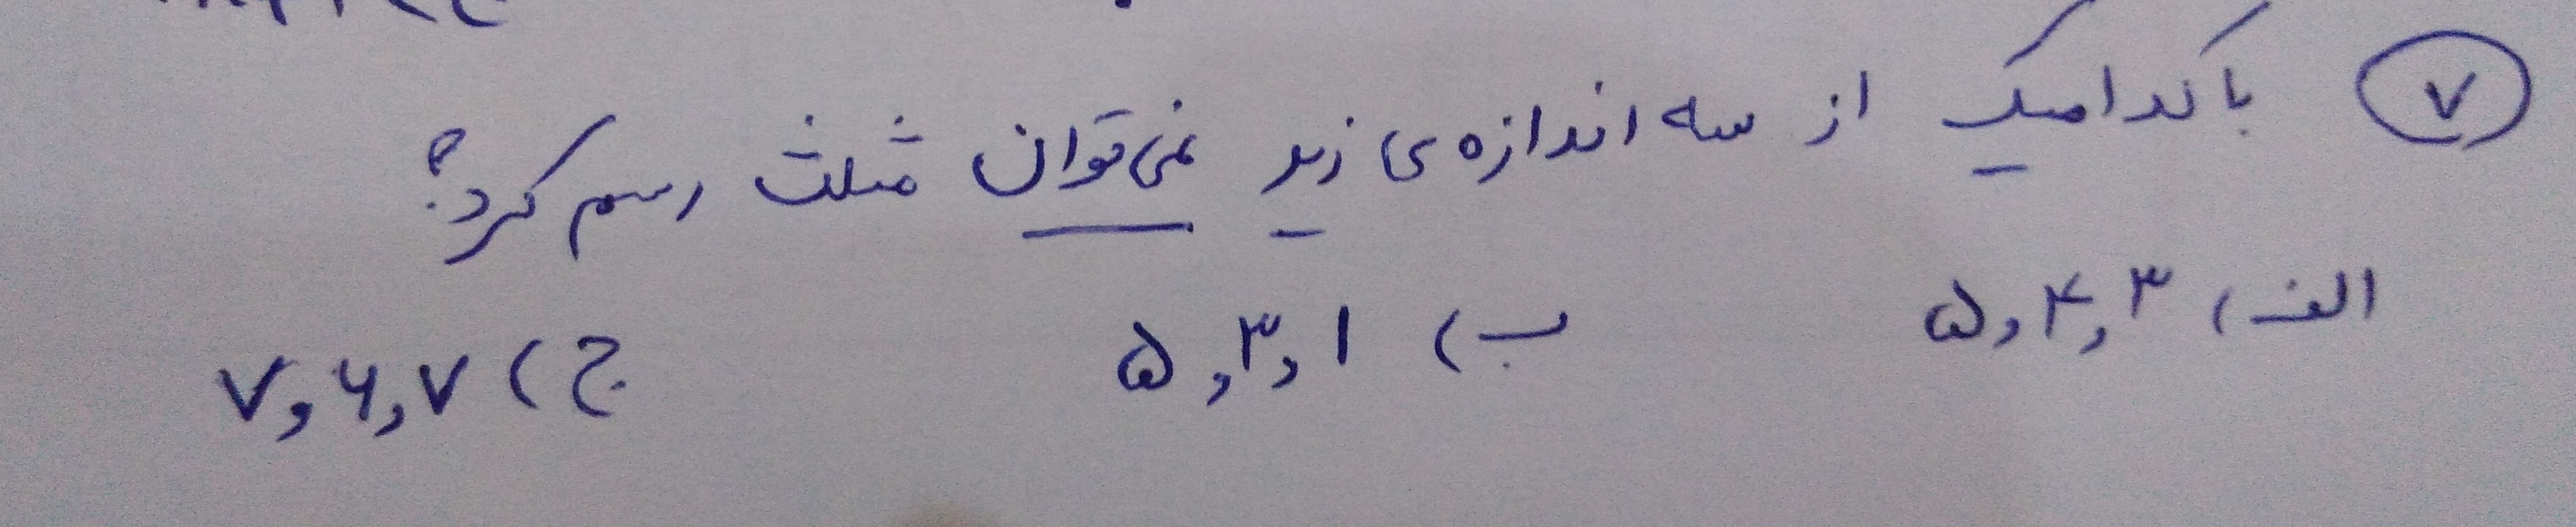 ۷ با کدامیک از سه اندازه‌ی زیر نمی‌توان مثلث رسم کرد؟
الف) ۳ و ۴ و ۵ ب) ۱ و ۳ و ۵ ج) ۷ و ۶ و ۷